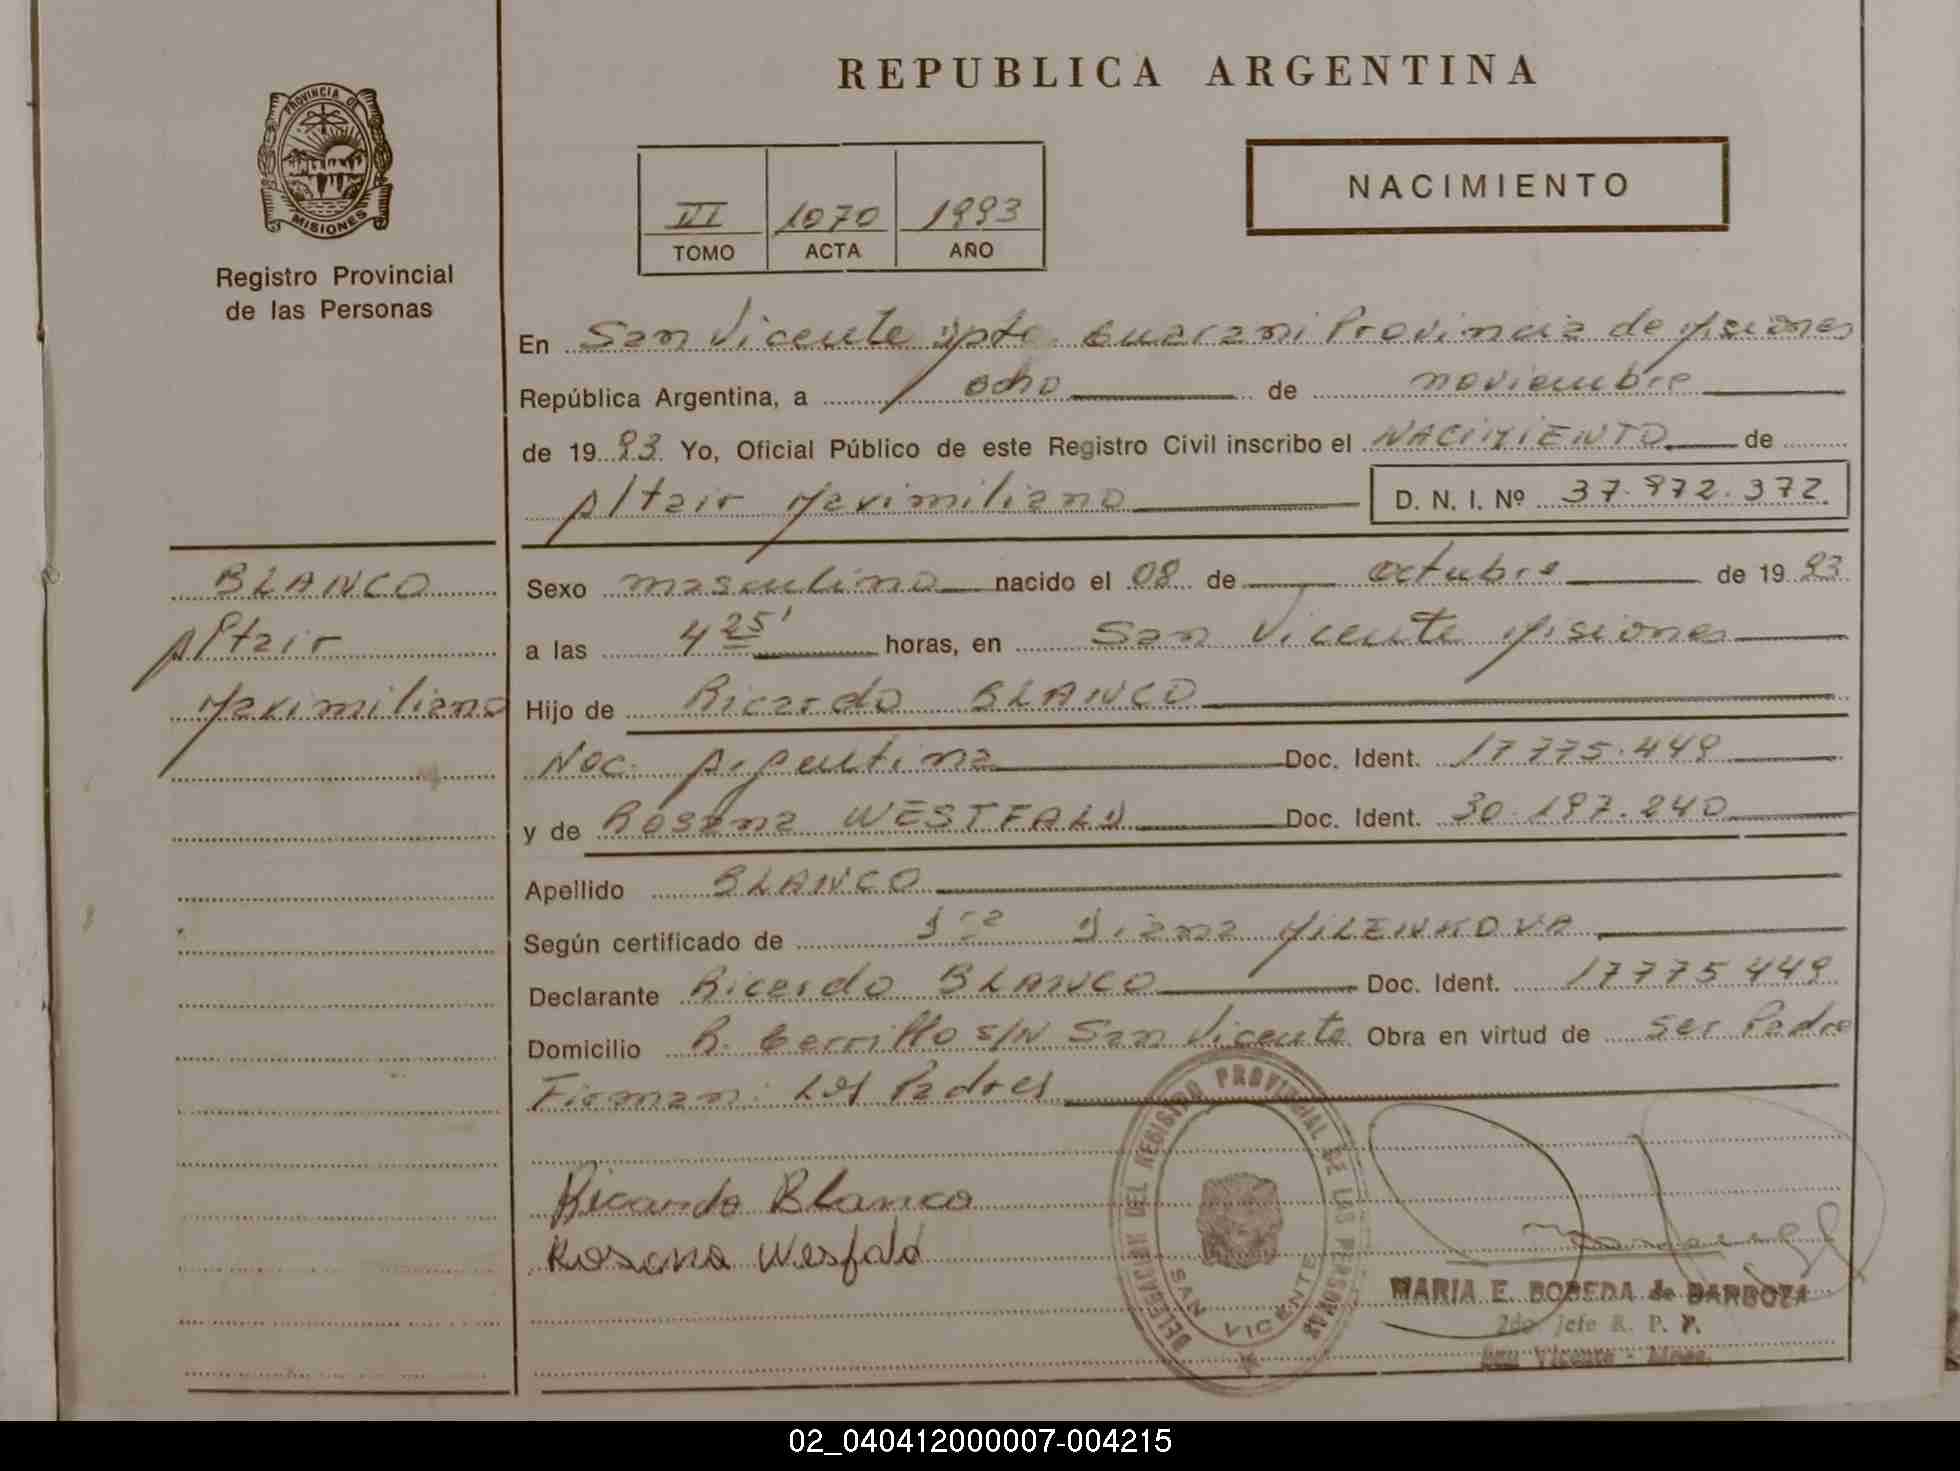 REPUBLICA ARGENTINA
PROVINCIA DE
MISIONES
Registro Provincial
de las Personas
VI 1070 1993
TOMO ACTA AÑO
NACIMIENTO
En San Vicente Dpto. Guarani Provincia de Misiones
República Argentina, a ocho de noviembre
de 1993 Yo, Oficial Público de este Registro Civil inscribo el NACIMIENTO de
Altair Maximiliano D. N. I. Nº 37.972.372
BLANCO
Altair
Maximiliano
Sexo masculino nacido el 08 de octubre de 1993
a las 4 25' horas, en San Vicente Misiones
Hijo de Ricardo BLANCO
Nac. Argentina Doc. Ident. 17775.449
y de Rosana WESTFALD Doc. Ident. 30.197.240
Apellido BLANCO
Según certificado de Dra Diana MILENKOVA
Declarante Ricardo BLANCO Doc. Ident. 17775449
Domicilio B. Cerrillo s/N San Vicente Obra en virtud de ser Padre
Firman: Los Padres
Ricardo Blanco
Rosana Wesfald
DELEGACION DEL REGISTRO PROVINCIAL DE LAS PERSONAS
SAN VICENTE
MARIA E. BOBEDA de BARBOZA
2do Jefe R. P. P.
San Vicente - Mnes.
02_040412000007-004215